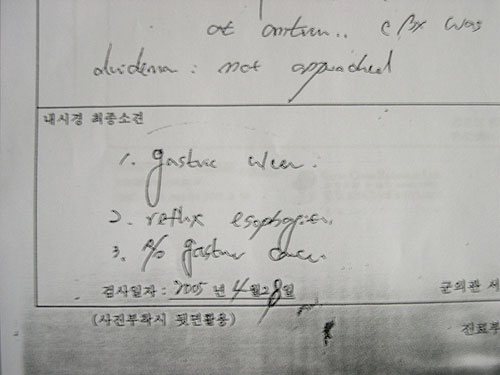 at antrum.. c Bx was
duodenum : not approached
내시경 최종소견
1. gastric ulcer.
2. reflux esophagitis.
3. R/O gastric cancer.
검사일자 : 2005 년 4 월 28 일 군의관 세
(사진부착시 뒷면활용) 진료부